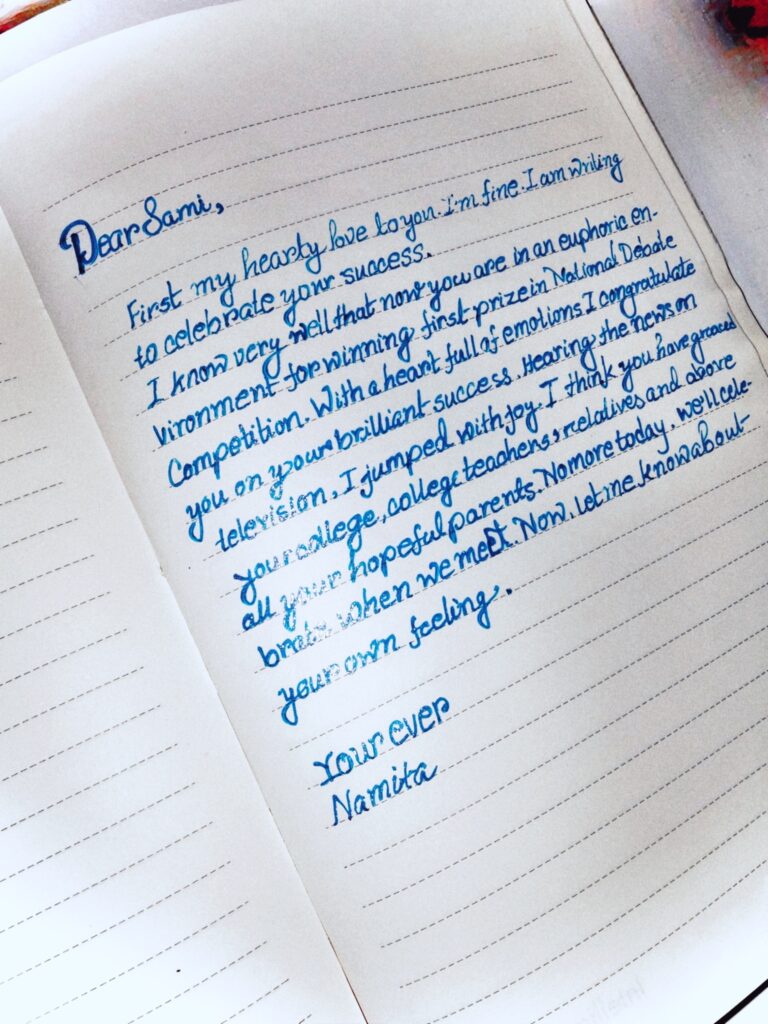 Dear Sami,
First my hearty love to you. I'm fine. I am writing
to celebrate your success.
I know very well that now you are in an euphoric en-
vironment for winning first prize in National Debate
Competition. With a heart full of emotions I congratulate
you on your brilliant success. Hearing the news on
television, I jumped with joy. I think you have graced
your college, college teachers, relatives and above
all your hopeful parents. No more today, we'll cele-
brate when we meet. Now, let me know about
your own feeling.
Your ever
Namita